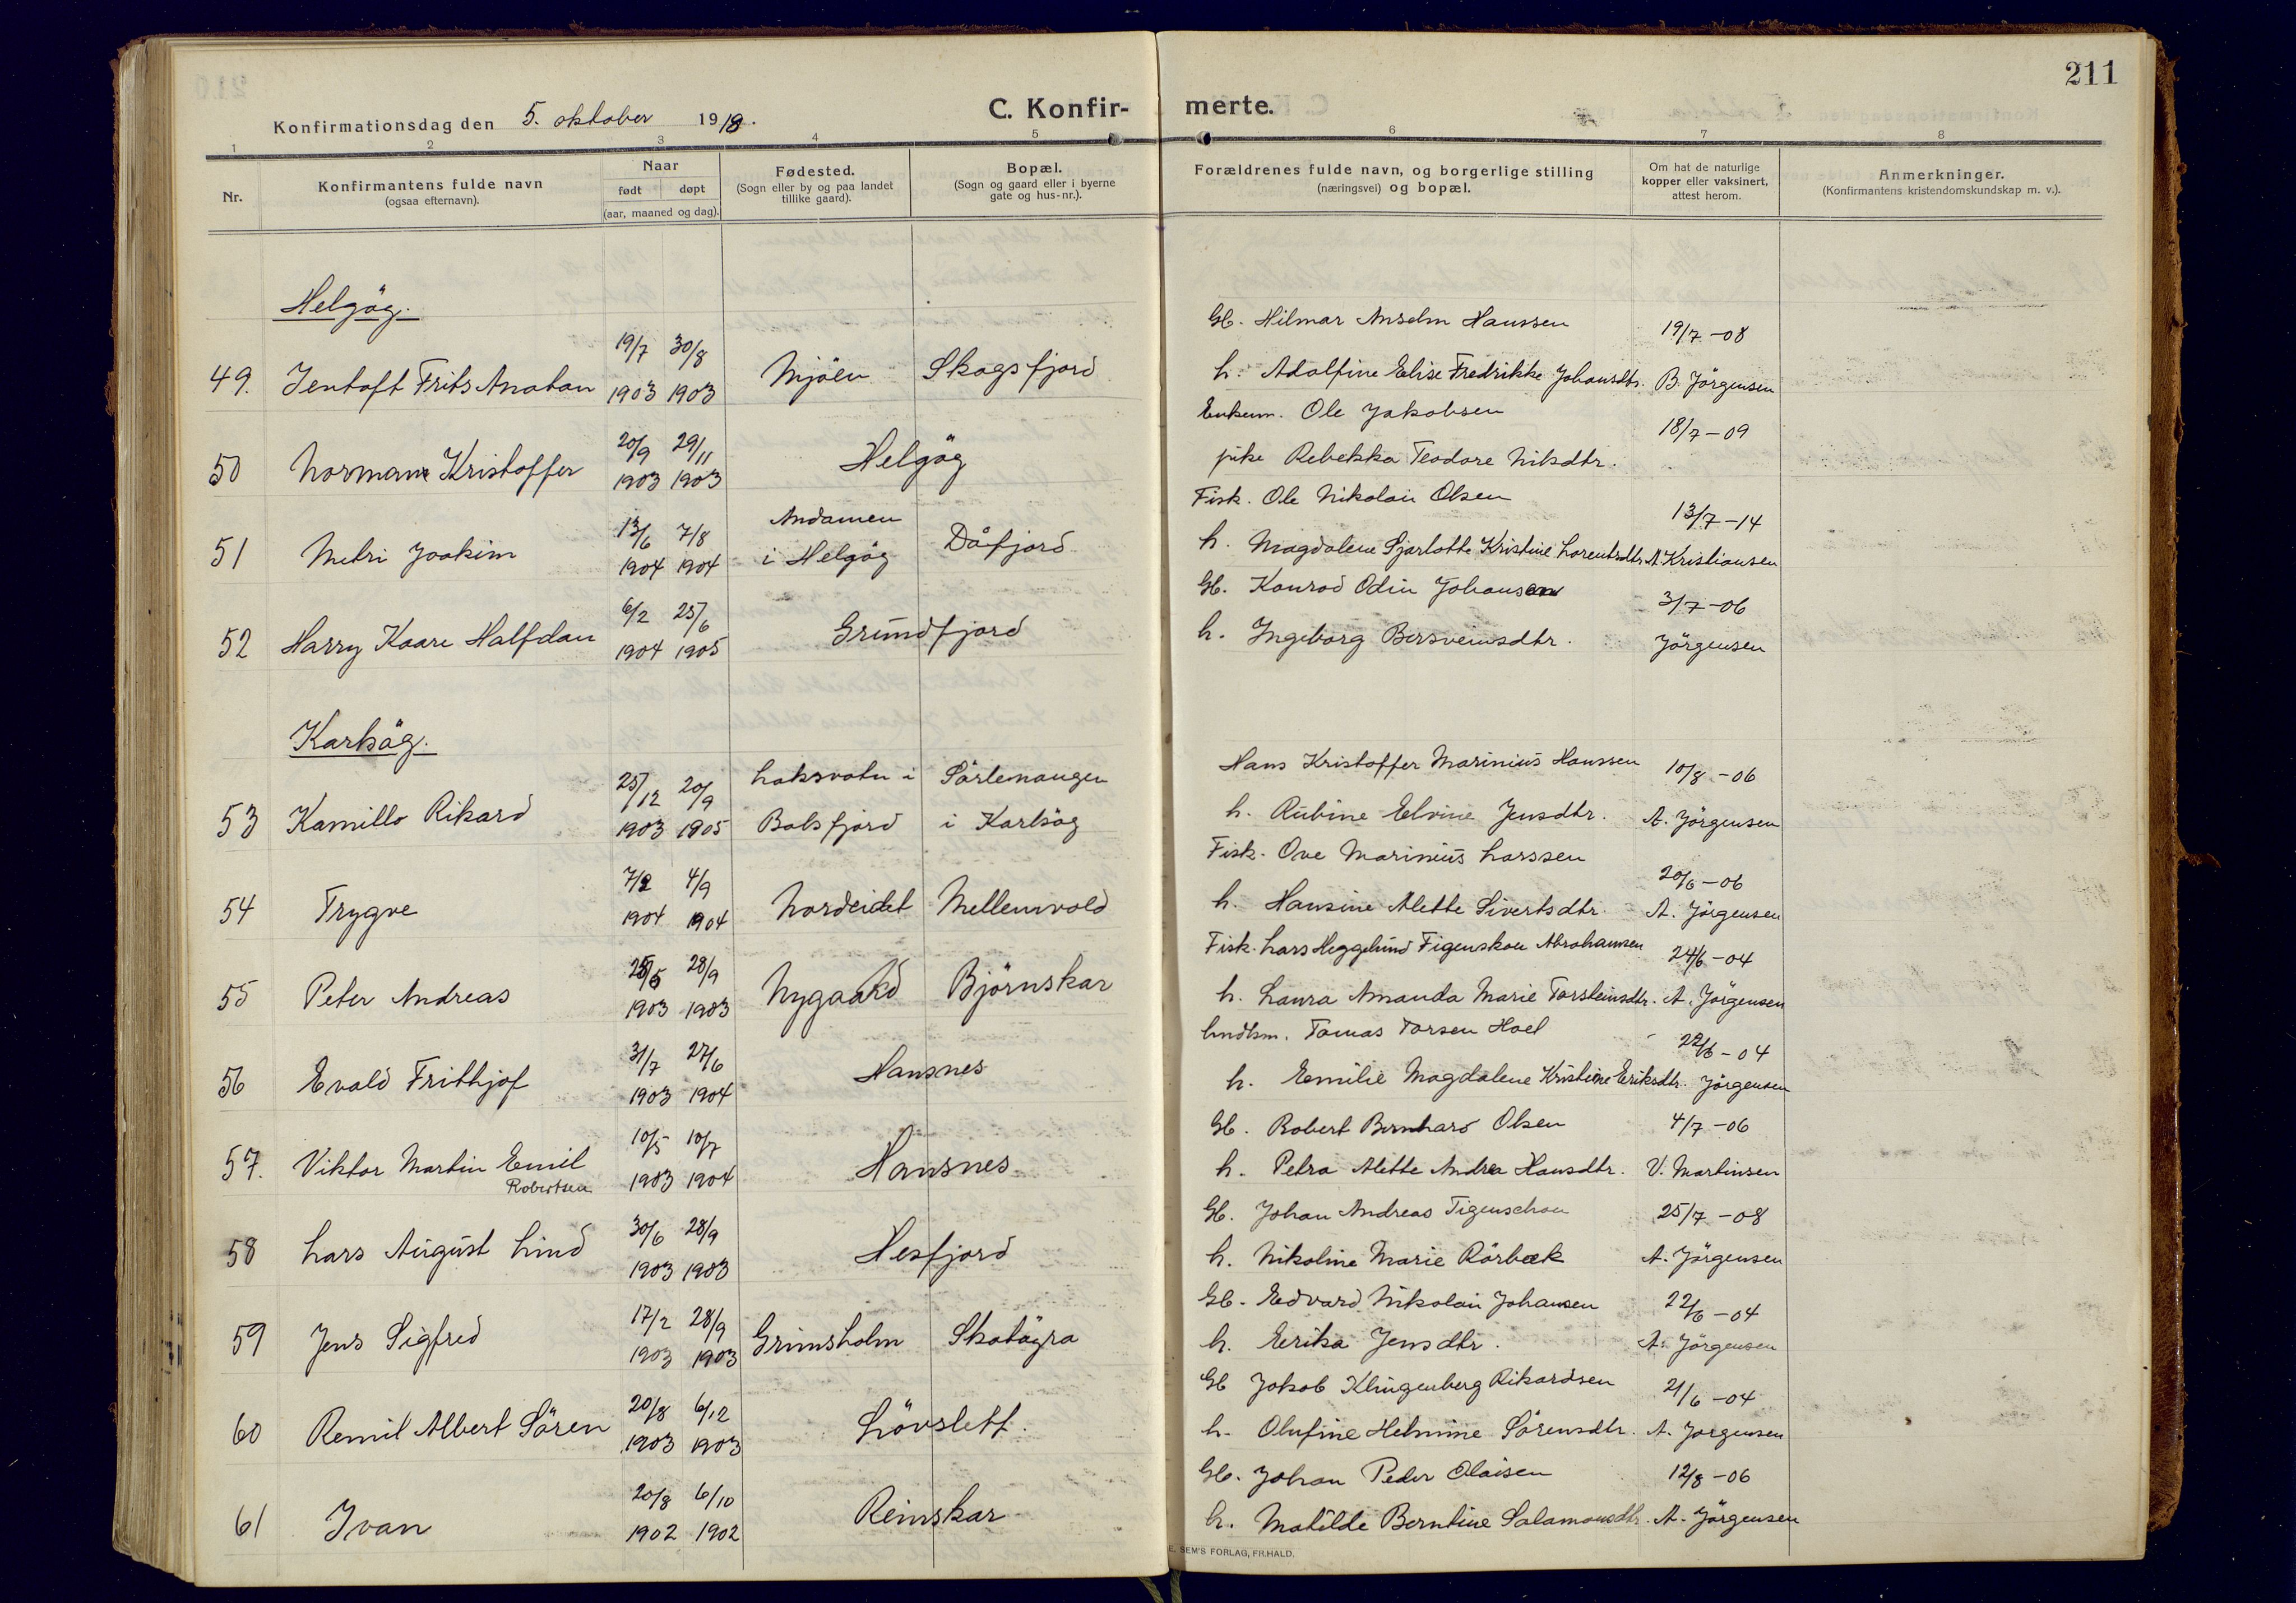 211
Konfirmationsdag den 5. oktober 1918.
C. Konfir-merte.
1 2 3 4 5 6 7 8
Nr.
Konfirmantens fulde navn
(ogsaa efternavn).
Naar
født døpt
(aar, maaned og dag).
Fødested.
(Sogn eller by og paa landet
tillike gaard).
Bopæl.
(Sogn og gaard eller i byerne
gate og hus-nr.).
Forældrenes fulde navn, og borgerlige stilling
(næringsvei) og bopæl.
Om hat de naturlige
kopper eller vaksinert,
attest herom.
Anmerkninger.
(Konfirmantens kristendomskundskap m. v.).
Helgöy.
19/7 30/8 Gb. Hilmar Anselm Hanssen 19/7-08
49. Jentoft Frits Anatan 1903 1903 Mjölu Skogsfjord h. Adolfine Elise Fredrikke Johansdtr. B. Jörgensen
20/9 29/11 Enkem. Ole Jakobsen 18/7-09
50 Normann Kristoffer 1903 1903 Helgöy pike Rebekka Teodore Nilsdtr.
13/6 7/8 Andamen Fisk. Ole Nikolai Olsen 13/7-14
51 Metri Joakim 1904 1904 i Helgöy Dåfjord h. Magdalene Sjarlotte Kristine Lorentsdtr A. Kristiansen
6/2 25/6 Gb. Konrad Odin Johansen 3/7-06
52 Harry Kaare Halfdan 1904 1905 Grundfjord h. Ingeborg Bersveinsdtr. Jörgensen
Karlsöy.
25/12 20/9 Laksvatn i Sörlenangen Hans Kristoffer Marinius Hanssen 10/8-06
53 Kamillo Rikard 1903 1905 Balsfjord i Karlsöy h. Rubine Elvine Jensdtr. A. Jörgensen
7/2 4/9 Fisk. Ove Marinius Larssen 20/6-06
54 Trygve 1904 1904 Nordeidet Mellemvold h. Hansine Alette Sivertsdtr. A. Jörgensen
28/9 Fisk. Lars Heggelund Figenskou Abrahamsen 24/6-04
55 Peter Andreas 1903 1903 Nygaard Björnskar h. Laura Amanda Marie Torsteinsdtr. A. Jörgensen
31/7 27/6 Lndhm. Tomas Torsen Hoel 22/6-04
56 Evald Frithjof 1903 1904 Hansnes h. Emilie Magdalene Kristine Eriksdtr. Jörgensen
10/5 10/7 Gb. Robert Bernhard Olsen 4/7-06
57. Viktor Martin Emil 1903 1904 Hansnes h. Petra Alette Andrea Hansdtr. V. Martinsen
Robertsen
30/6 28/9 Gb. Johan Andreas Figenschou 25/7-08
58 Lars August Lind 1903 1903 Hesfjord h. Nikoline Marie Rörbæk A. Jörgensen
17/2 28/9 Gb. Edvard Nikolai Johansen 22/6-04
59 Jens Sigfred 1903 1903 Grimsholm Skatöyra h. Erika Jensdtr. A. Jörgensen
20/8 6/12 Gb Jakob Klingenberg Rikardsen 21/6-04
60 Remil Albert Sören 1903 1903 Lövslett. h. Olufine Helmine Sörensdtr. A. Jörgensen
20/8 6/10 Gb. Johan Peder Olaisen 12/8-06
61 Ivan 1902 1902 Reinskar h. Matilde Berntine Salamonsdtr. A. Jörgensen
E. SEM'S FORLAG, FR.HALD.